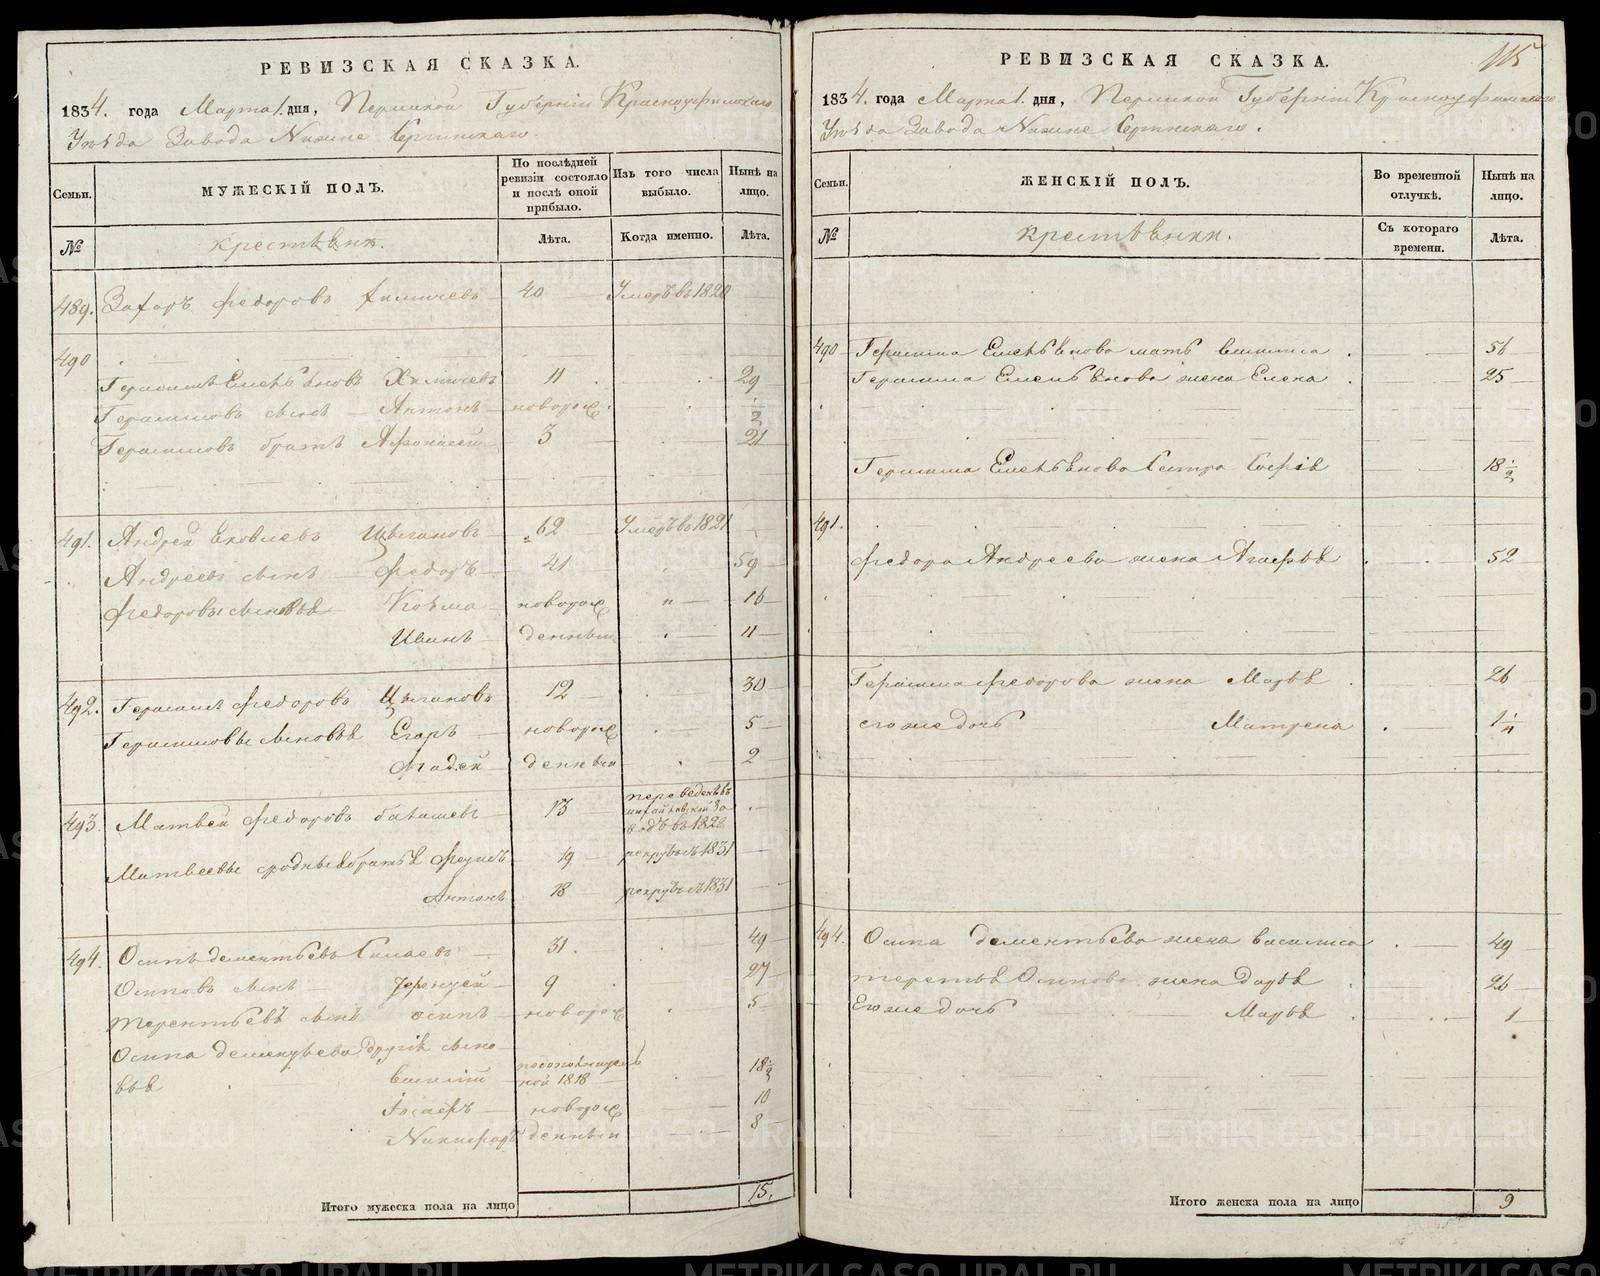 РЕВИЗСКАЯ СКАЗКА.
1834. года Марта 1. дня, Пермской Губерніи Красноуфимскаго
Уѣзда Завода Нижне Сергинскаго.
Семьи.
МУЖЕСКІЙ ПОЛЪ.
По послѣдней ревизіи состояло и послѣ оной прибыло.
Изъ того числа выбыло.
Нынѣ на лицо.
№
Крестьянъ.
Лѣта.
Когда именно.
Лѣта.
489. Захаръ Федоровъ 40 Умеръ въ 1820
490
Герасимъ Емельяновъ Химичевъ 11 29
Герасимовъ сынъ Антонъ новорож. 1/2
Герасимовъ братъ Афонасей 3 21
491. Андрей Яковлевъ Цыгановъ 62 Умеръ въ 1821
Андреевъ сынъ Федоръ 41 59
Федоровы сыновья Козма новорож 16
Иванъ денныи 11
492. Герасимъ Федоровъ Цыгановъ 12 30
Герасимовы сыновья Егоръ новорож 5
Фадей денныи 2
493. Матвей Федоровъ 13 переведенъ въ Михайловской За-
водъ въ 1828
Матвеевы сродныя братья 19 рекрутъ съ 1831
Антонъ 18 рекрутъ съ 1831
494. Осипъ Дементьевъ 31. 49
Осиповъ сынъ Терентей 9 27
Терентьевъ сынъ Осипъ новорож 5
Осипа Дементьева другія сыно-
вья Василій
ной 1818 18 1/2
Іосафъ новорож 10
Никифоръ денныи 8
Итого мужеска пола на лицо 15.
115
РЕВИЗСКАЯ СКАЗКА.
1834. года Марта 1. дня, Пермской Губерніи Красноуфимскаго
Уѣзда Завода Нижне Сергинскаго.
Семьи.
ЖЕНСКІЙ ПОЛЪ.
Во временной отлучкѣ.
Нынѣ на лицо.
№
Крестьянки.
Съ котораго времени.
Лѣта.
490 Герасима Емельянова мать 56
Герасима Емельянова жена Елена 25
Герасима Емельянова сестра Софія 18 1/2
491.
Федора Андреева жена Агафья 52
Герасима Федорова жена Марья 26
его же дочь Матрена 1 1/4
494. Осипа Дементьева жена Василиса 49
Терентья Осипова жена Дарья 26
Его же дочь Марья 1
Итого женска пола на лицо 9
METRIKI.CASO-URAL.RU